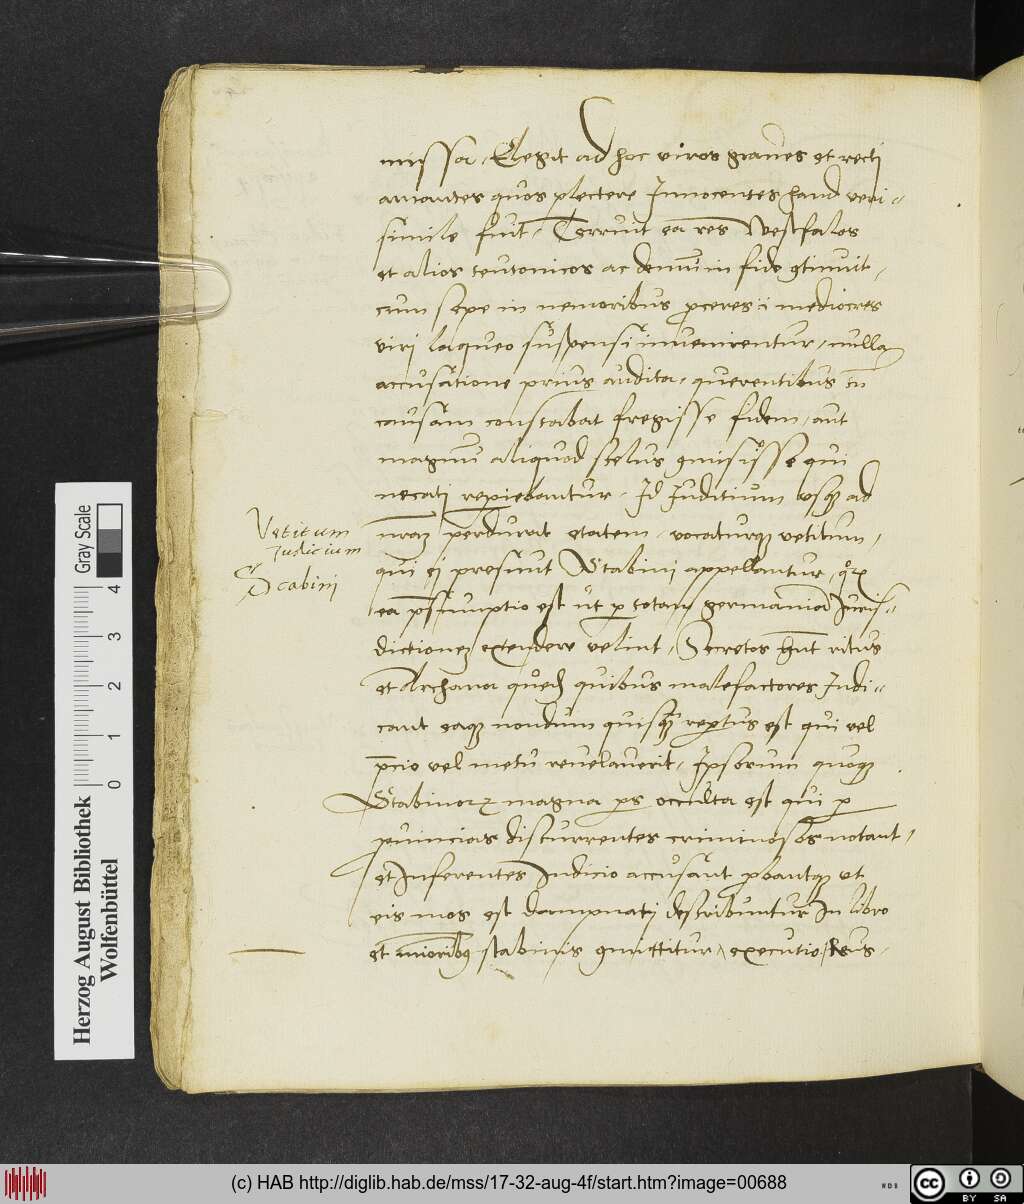 missa. Elegit ad hoc viros graues et recti
amantes quos plectere Innocentes haud veri-
simile fuit. Terruit ea res Westfalos
et alios teutonicos ac demum in fide gtinuit,
cum sepe in nemoribus pceres i mediocres
viri laqueo suspensi inuenirentur, nulla
accusatione prius audita, querentibus tn
causam constabat fregisse fidem, aut
magnu aliquod scelus gmisisse qui
necati repiebantur. Id Iuditium usq ad
nram perdurat etatem, vocaturq vetitum,
qui ei presunt Scabini appellantur, qr
ea psumptio est ut p totam germaniā Iuris-
dictionem extendere velint, Secretos hnt ritus
et Archana quedā quibus malefactores Iudi-
cant eaq nondum quisq reptus est qui vel
pcio vel metu reuelauerit. Ipsorum quoq
Scabinor magna ps occulta est qui p
puincias discurrentes criminosos notant,
et Inferentes Iudicio accusant pbantq ut
eis mos est dampnati describuntur In libro
et iunioribq scabinis gmittitur executio, Reus.
Vetitum
Judicium
Scabini
Gray Scale
0 1 2 3 4
Herzog August Bibliothek
Wolfenbüttel
(c) HAB http://diglib.hab.de/mss/17-32-aug-4f/start.htm?image=00688
cc BY SA